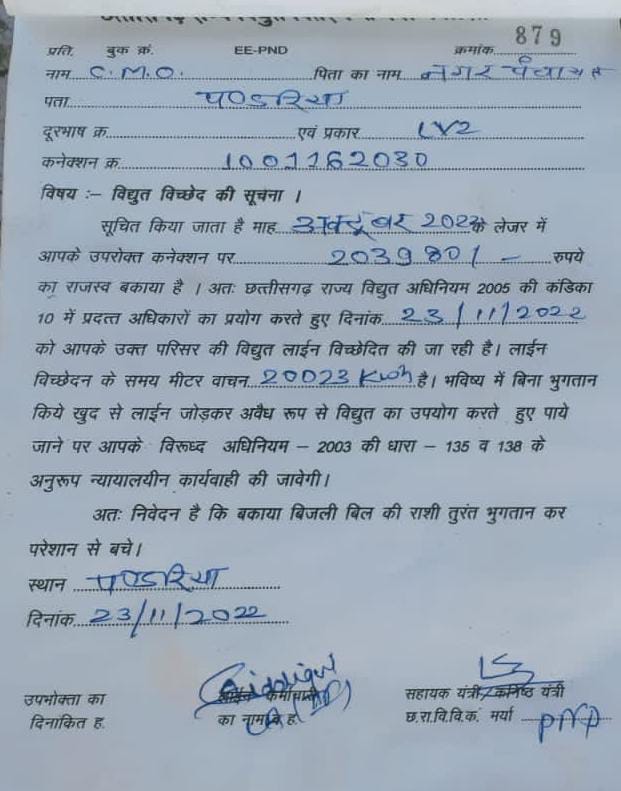 879
प्रति, बुक क्रं. EE-PND क्रमांक
नाम C.M.O. पिता का नाम नगर पंचायत
पता पण्डरिया
दूरभाष क्र. एवं प्रकार LV2
कनेक्शन क्र. 1001162030
विषय :– विद्युत विच्छेद की सूचना ।
सूचित किया जाता है माह अक्टूबर 2022 के लेजर में
आपके उपरोक्त कनेक्शन पर 2039801 – रुपये
का राजस्व बकाया है । अतः छत्तीसगढ़ राज्य विद्युत अधिनियम 2005 की कंडिका
10 में प्रदत्त अधिकारों का प्रयोग करते हुए दिनांक 23/11/2022
को आपके उक्त परिसर की विद्युत लाईन विच्छेदित की जा रही है। लाईन
विच्छेदन के समय मीटर वाचन 20023 Kwh है। भविष्य में बिना भुगतान
किये खुद से लाईन जोड़कर अवैध रूप से विद्युत का उपयोग करते हुए पाये
जाने पर आपके विरूध्द अधिनियम – 2003 की धारा – 135 व 138 के
अनुरूप न्यायालयीन कार्यवाही की जावेगी।
अतः निवेदन है कि बकाया बिजली बिल की राशी तुरंत भुगतान कर
परेशान से बचे।
स्थान पण्डरिया
दिनांक 23/11/2022
उपभोक्ता का
दिनांकित ह.
का नाम व ह.
सहायक यंत्री/कनिष्ठ यंत्री
छ.रा.वि.वि.कं. मर्या PND